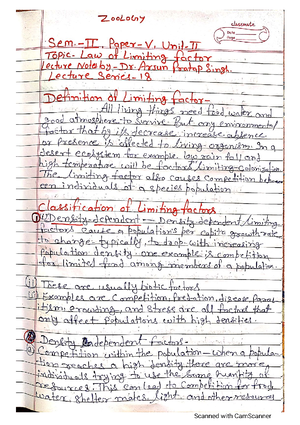 Zoology
classmate
Date
Page
Sem.-II, Paper-V, Unit-II
Topic- Law of Limiting factor
Lecture Note by- Dr. Arjun Pratap Singh
Lecture Series-18
Definition of Limiting factor-
All living things need food water and
good atmosphere to survive. But any environmental
factor that by its decrease increase absence
or presence is affected to living organism. In a
desert ecosystem for example low rain fall and
high temperature will be factors limiting colonization.
The limiting factor also causes competition between
individuals of a species population
Classification of Limiting factors
(1) Density-dependent - Density dependent limiting
factors cause a population's per capita growth rate
to change typically to drop with increasing
population density. one example is competition
for limited food among members of a population.
(i) These are usually biotic factors
(ii) Examples are Competition, Predation, disease, Paras
itism Crowding, and Stress are all factors that
only affect populations with high densities.
(2) Density Independent factors-
Competition within the population - when a popula-
tion reaches a high density there are more
individuals trying to use the same quantity of
resources. This can lead to Competition for food
water, shelter mates, light and other resources
Scanned with CamScanner